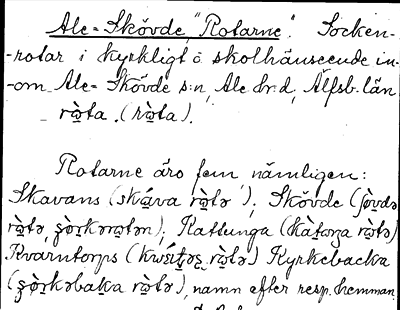 Ale-Skövde "Rotarne". Socken-
-rotar i kyrkligt o skolhänseende in-
-om Ale-Skövde s:n, Ale hrd, Älfsb. län
rὼta. (rὼta).
Rotarne äro fem, nämligen:
Skavans (skáva rὼtə); Skövde
rὼtə, Kattunga (kàtoŋa rὼtə)
Kvarntorps Kyrkebacka
rὼtə), namn efter resp. hemman.